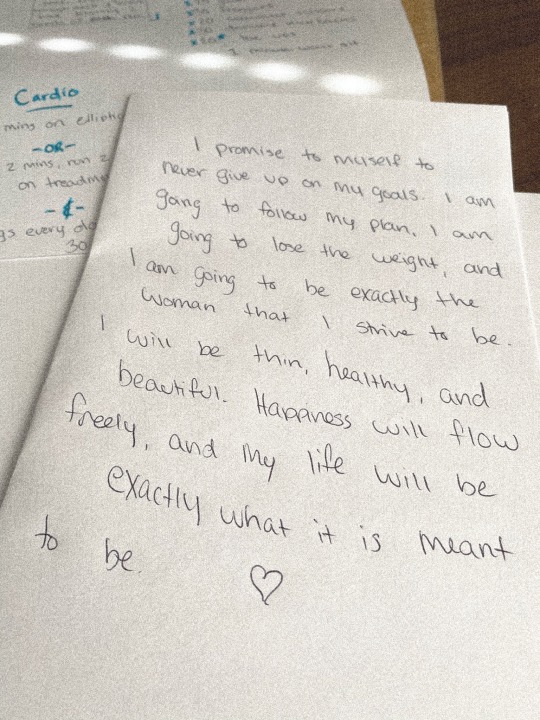 Cardio
mins on ellipti
-OR-
2 mins, run 2
on treadm
-&-
gs every
30
I promise to myself to
never give up on my goals. I am
going to follow my plan, I am
going to lose the weight, and
I am going to be exactly the
woman that I strive to be.
I will be thin, healthy, and
beautiful. Happiness will flow
freely, and my life will be
exactly what it is meant
to be. ♡